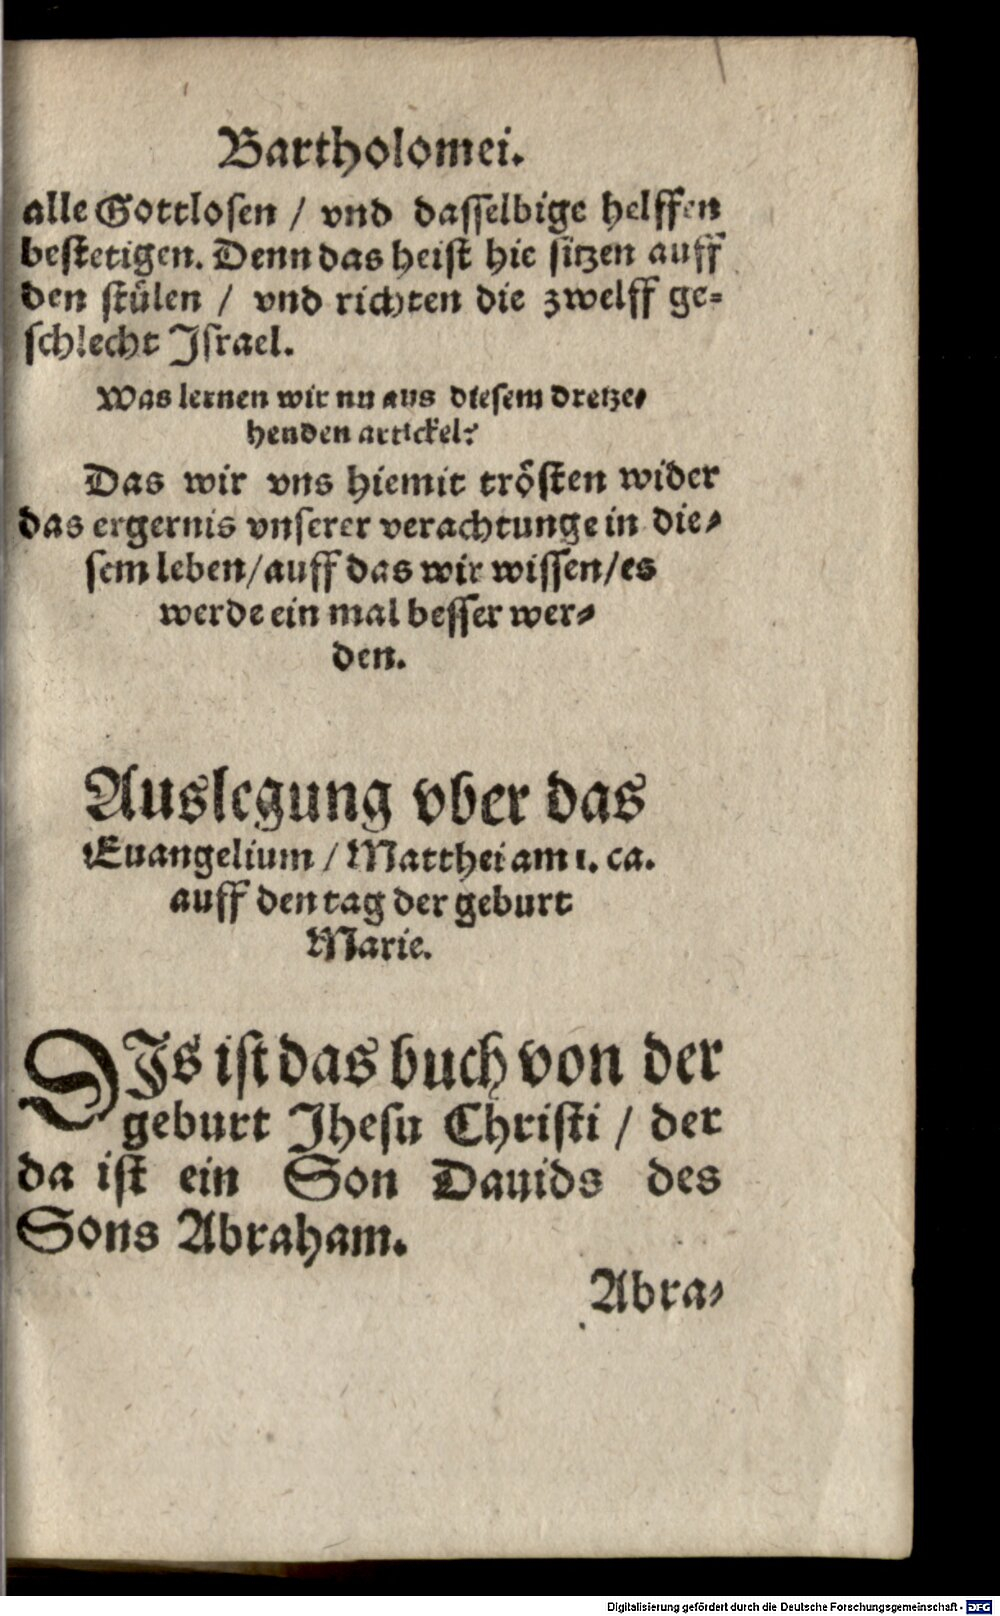 Bartholomei.
alle Gottlosen / vnd dasselbige helffen
bestetigen. Denn das heist hie sitzen auff
den stülen / vnd richten die zwelff ge=
schlecht Israel.
Was lernen wir nu aus diesem dreize=
henden artickel?
Das wir vns hiemit trösten wider
das ergernis vnserer verachtunge in die=
sem leben / auff das wir wissen / es
werde ein mal besser wer=
den.
Auslegung vber das
Euangelium / Matthei am 1. ca.
auff den tag der geburt
Marie.
DIs ist das buch von der
geburt Jhesu Christi / der
da ist ein Son Dauids des
Sons Abraham.
Abra=
Digitalisierung gefördert durch die Deutsche Forschungsgemeinschaft - DFG